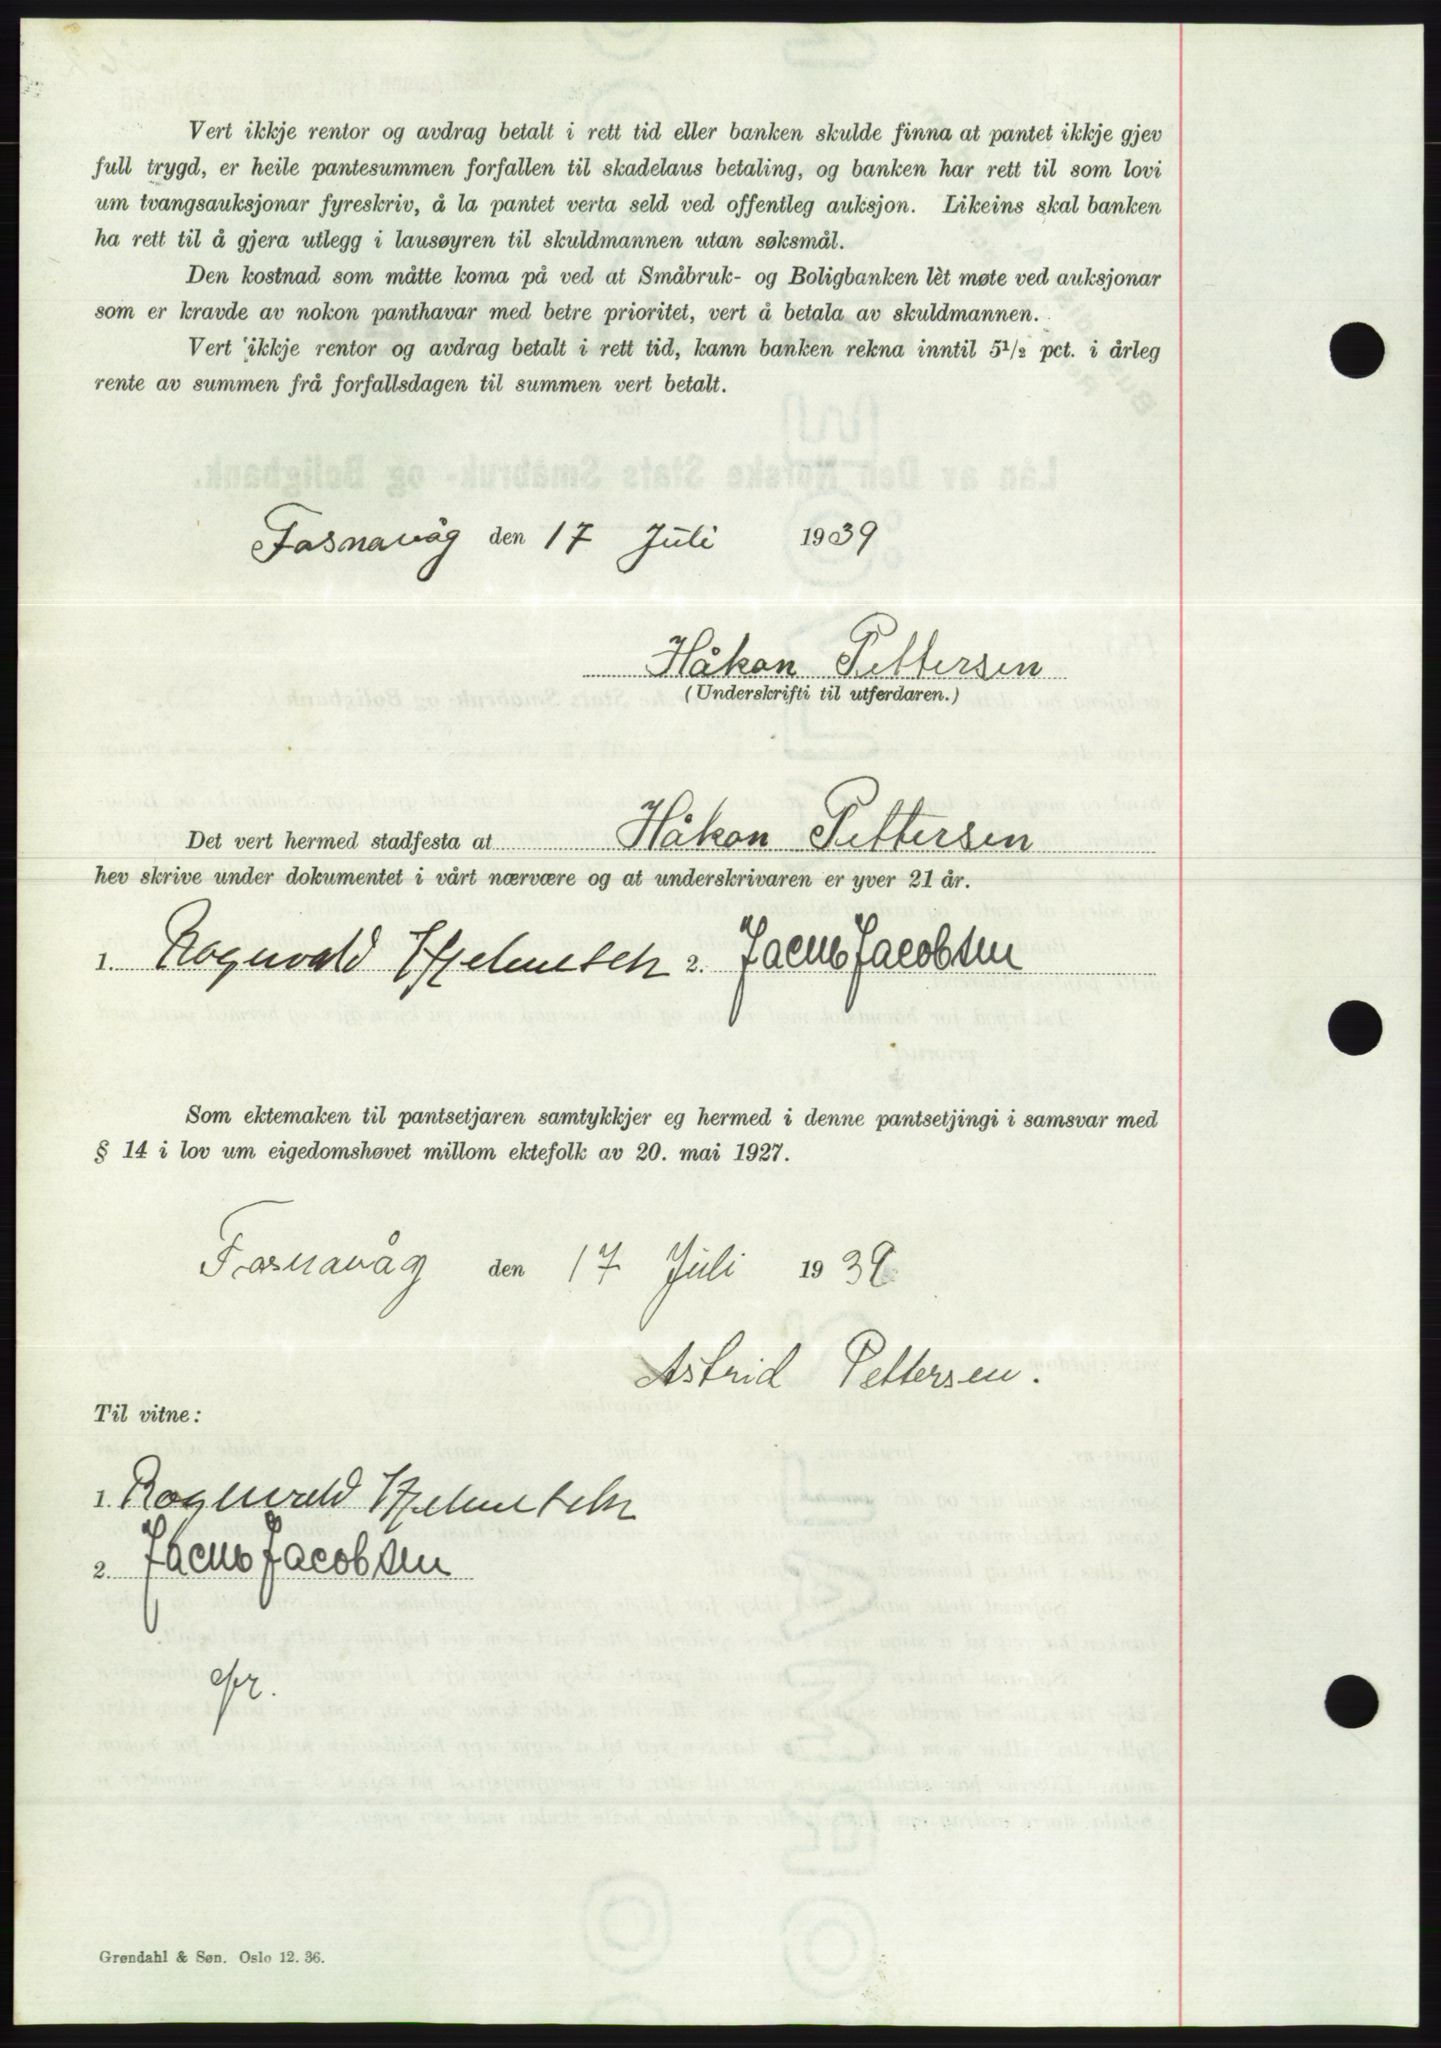 Vert ikkje rentor og avdrag betalt i rett tid eller banken skulde finna at pantet ikkje gjev
full trygd, er heile pantesummen forfallen til skadelaus betaling, og banken har rett til som lovi
um tvangsauksjonar fyreskriv, å la pantet verta seld ved offentleg auksjon. Likeins skal banken
ha rett til å gjera utlegg i lausøyren til skuldmannen utan søksmål.
Den kostnad som måtte koma på ved at Småbruk- og Boligbanken lèt møte ved auksjonar
som er kravde av nokon panthavar med betre prioritet, vert å betala av skuldmannen.
Vert ikkje rentor og avdrag betalt i rett tid, kann banken rekna inntil 5½ pct. i årleg
rente av summen frå forfallsdagen til summen vert betalt.
Fosnavåg den 17 Juli 1939
Håkon Pettersen
(Underskrifti til utferdaren.)
Det vert hermed stadfesta at Håkon Pettersen
hev skrive under dokumentet i vårt nærvære og at underskrivaren er yver 21 år.
1. Rognvald 2. Jacob Jacobsen
Som ektemaken til pantsetjaren samtykkjer eg hermed i denne pantsetjingi i samsvar med
§ 14 i lov um eigedomshøvet millom ektefolk av 20. mai 1927.
Fosnavåg den 17 Juli 1939
Astrid Pettersen.
Til vitne:
1. Rognvald
2. Jacob Jacobsen
Grøndahl & Søn. Oslo 12. 36.